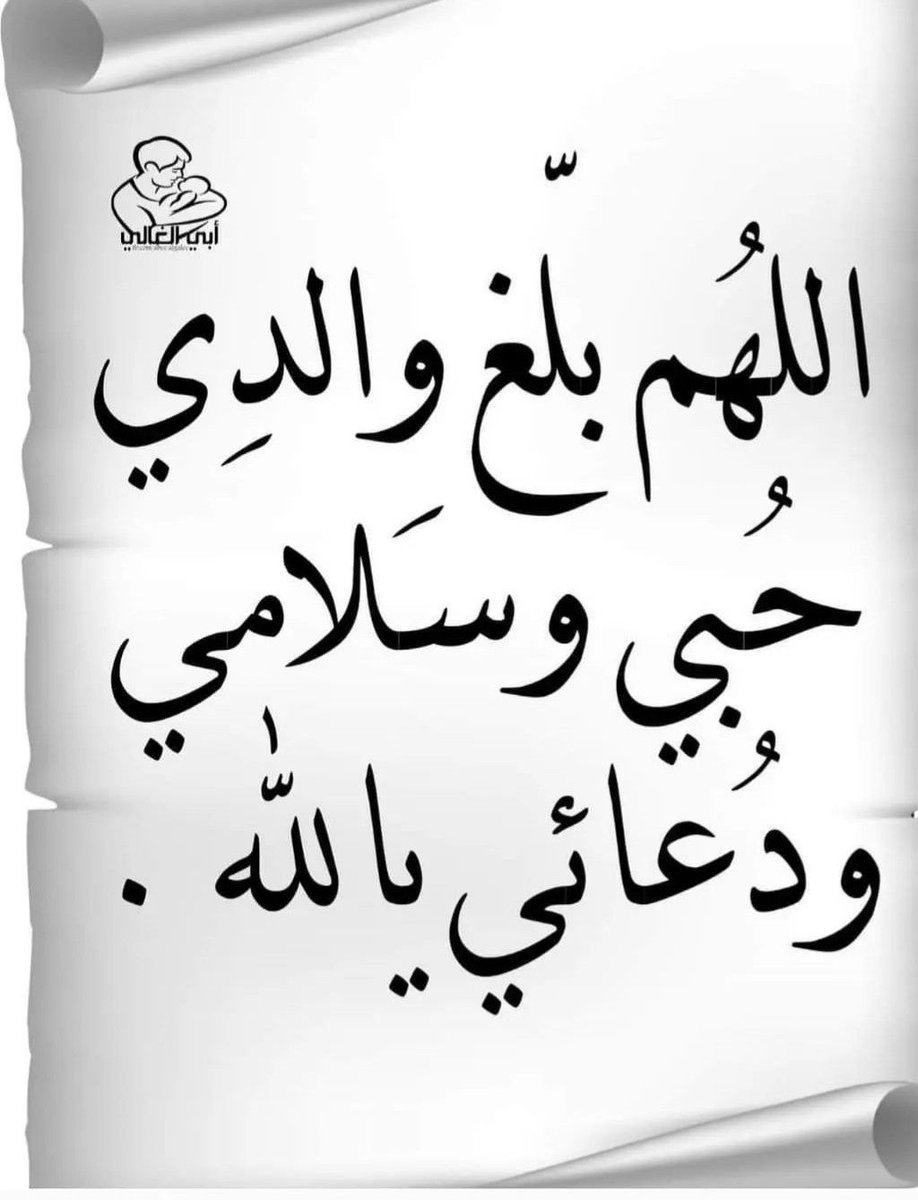 أبي الغالي
اللهُم بلّغ والدِي
حُبي وسَلامي
ودُعائي يالله .